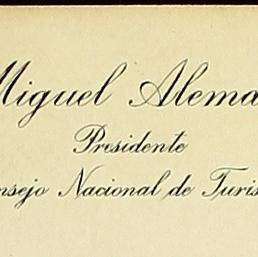 Miguel Alema
Presidente
nsejo Nacional de Turis